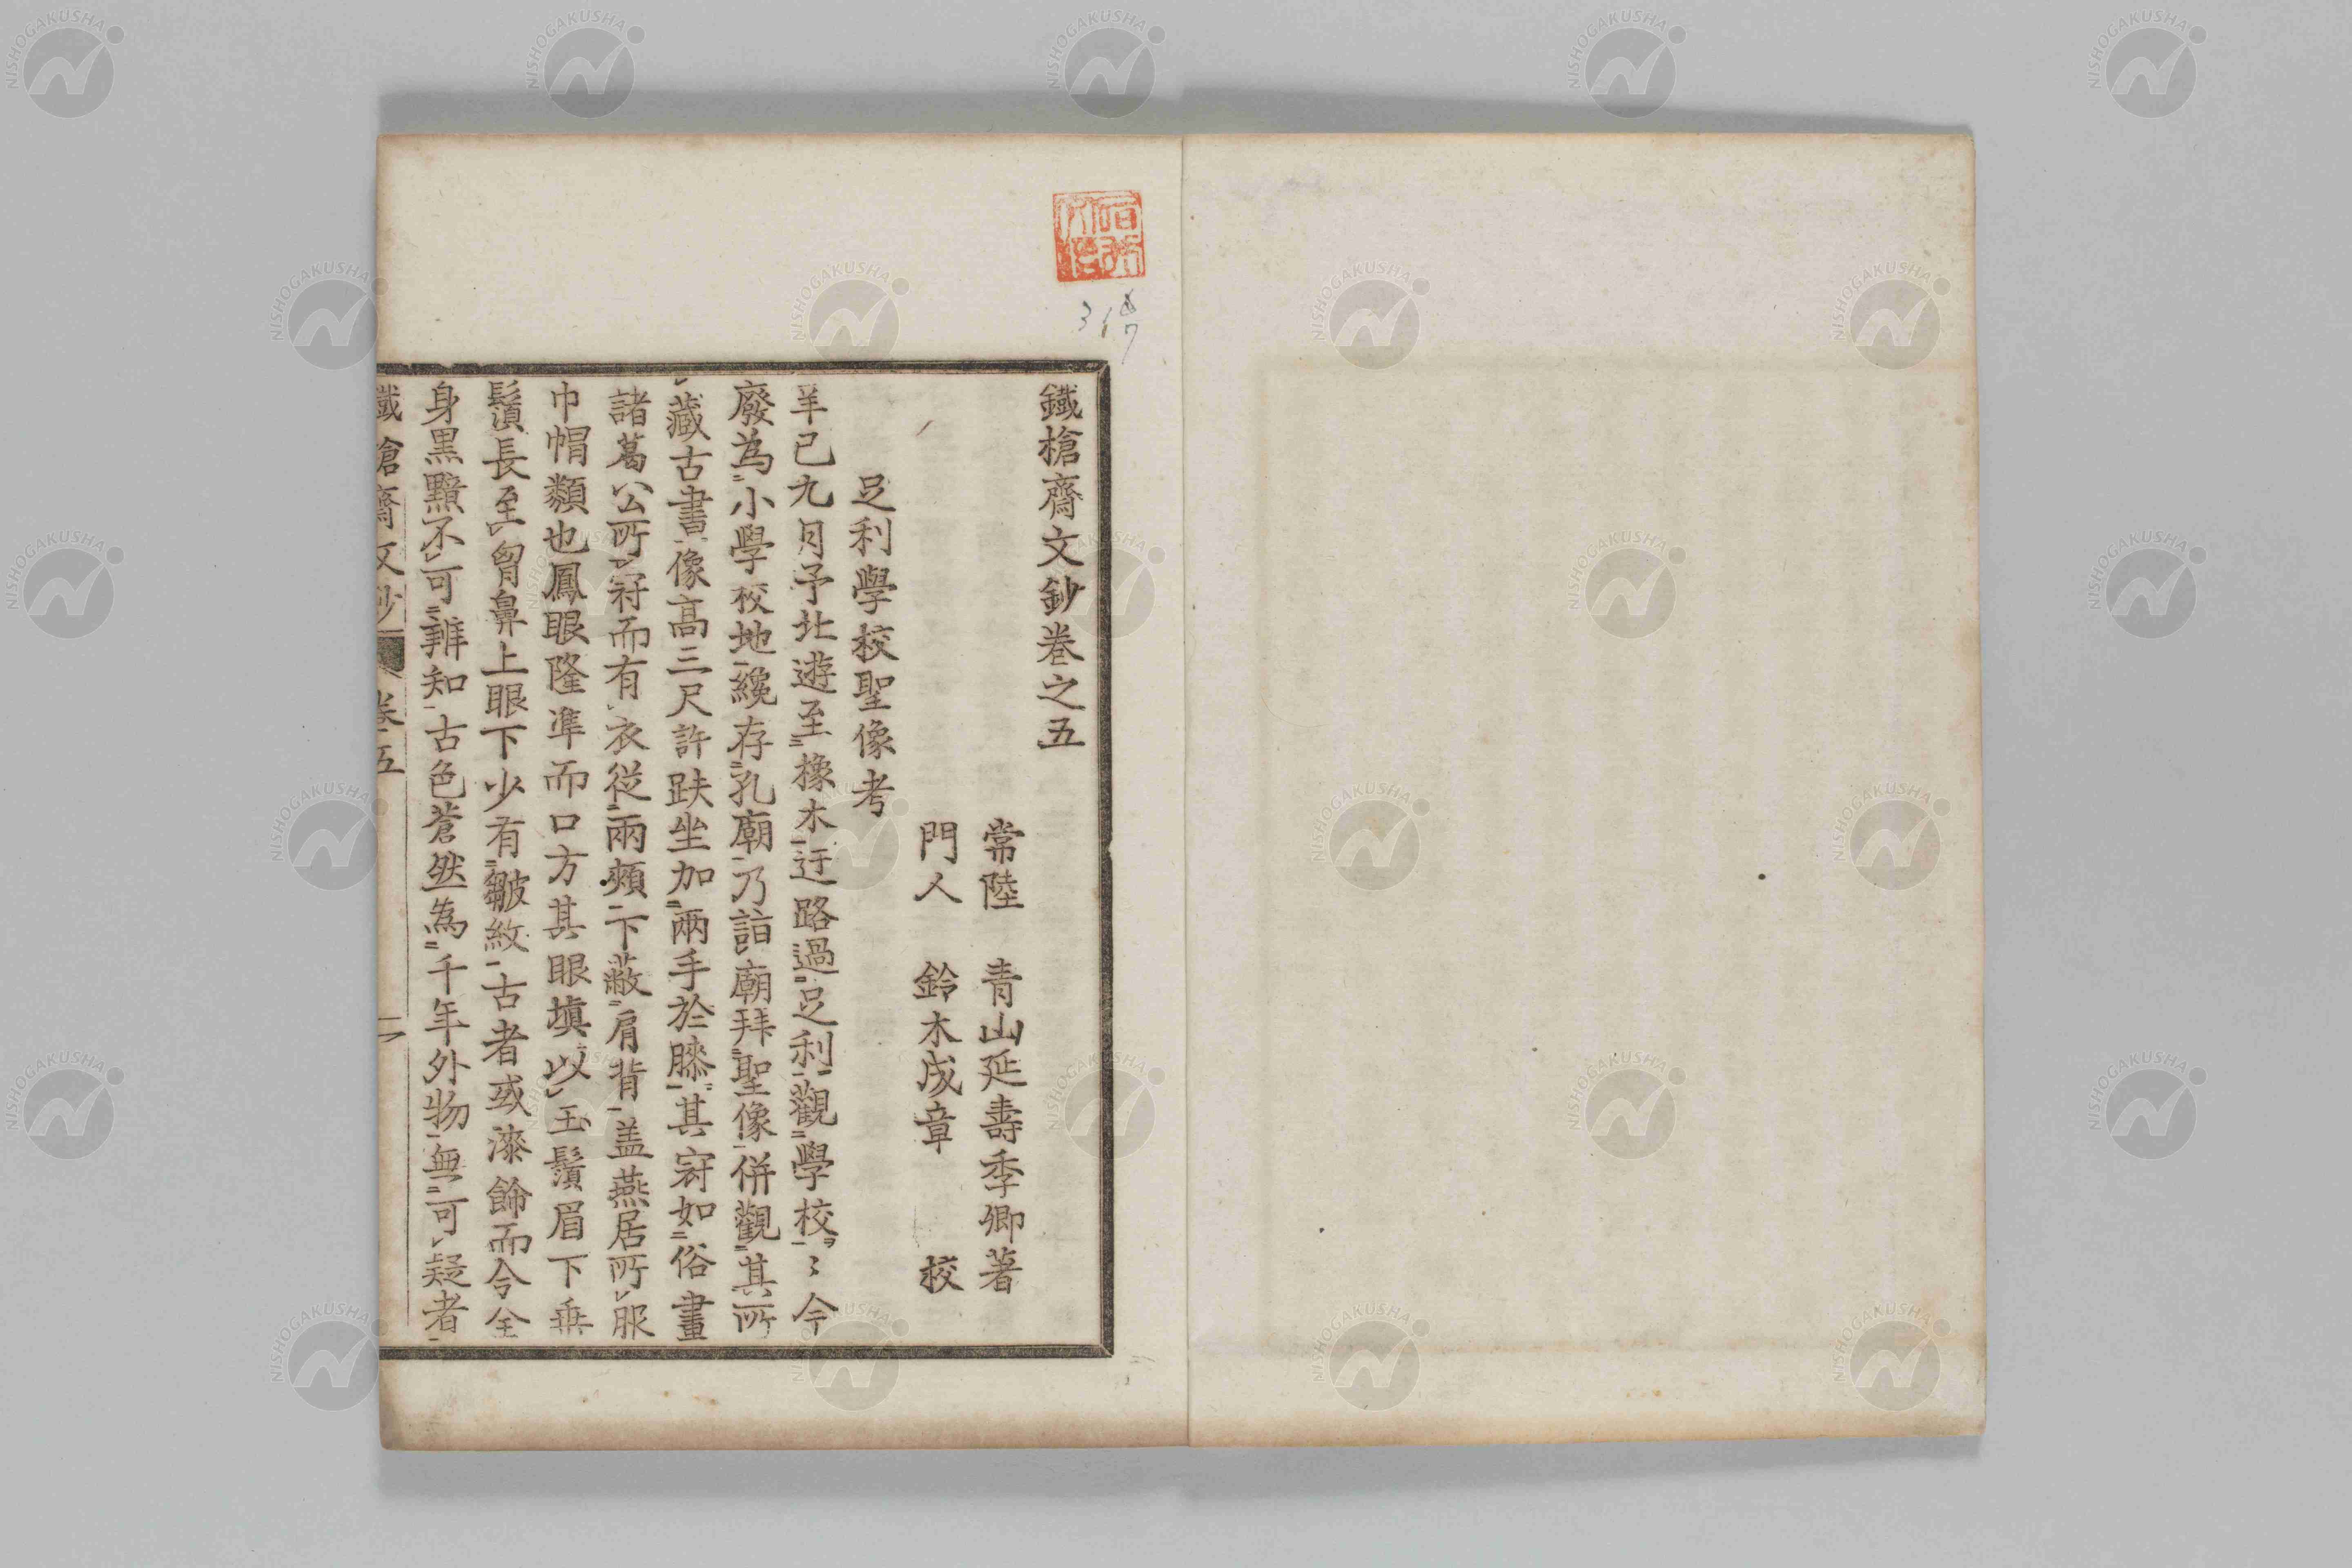 鐵槍齋文鈔卷之五
常陸 青山延壽季卿著
門人 鈴木成章 校
足利學校聖像考
羊已九月予北遊至橡木迂路過足利觀學校ゝ今
廢為小學校地纔存孔廟乃詣廟拜聖像併觀其所
藏古書像高三尺許趺坐加兩手於膝其冠如俗畫
諸葛公所冠而有衣從兩頰下蔽肩背盖燕居所服
巾帽類也鳳眼隆準而口方其眼塡以玉鬚眉下垂
鬚長至胷鼻上眼下少有皺紋古者或漆餙而今全
身黒黯不可辨知古色蒼然為千年外物無可疑者
鐵槍齋文鈔 卷五 一
317
NISHOGAKUSHA